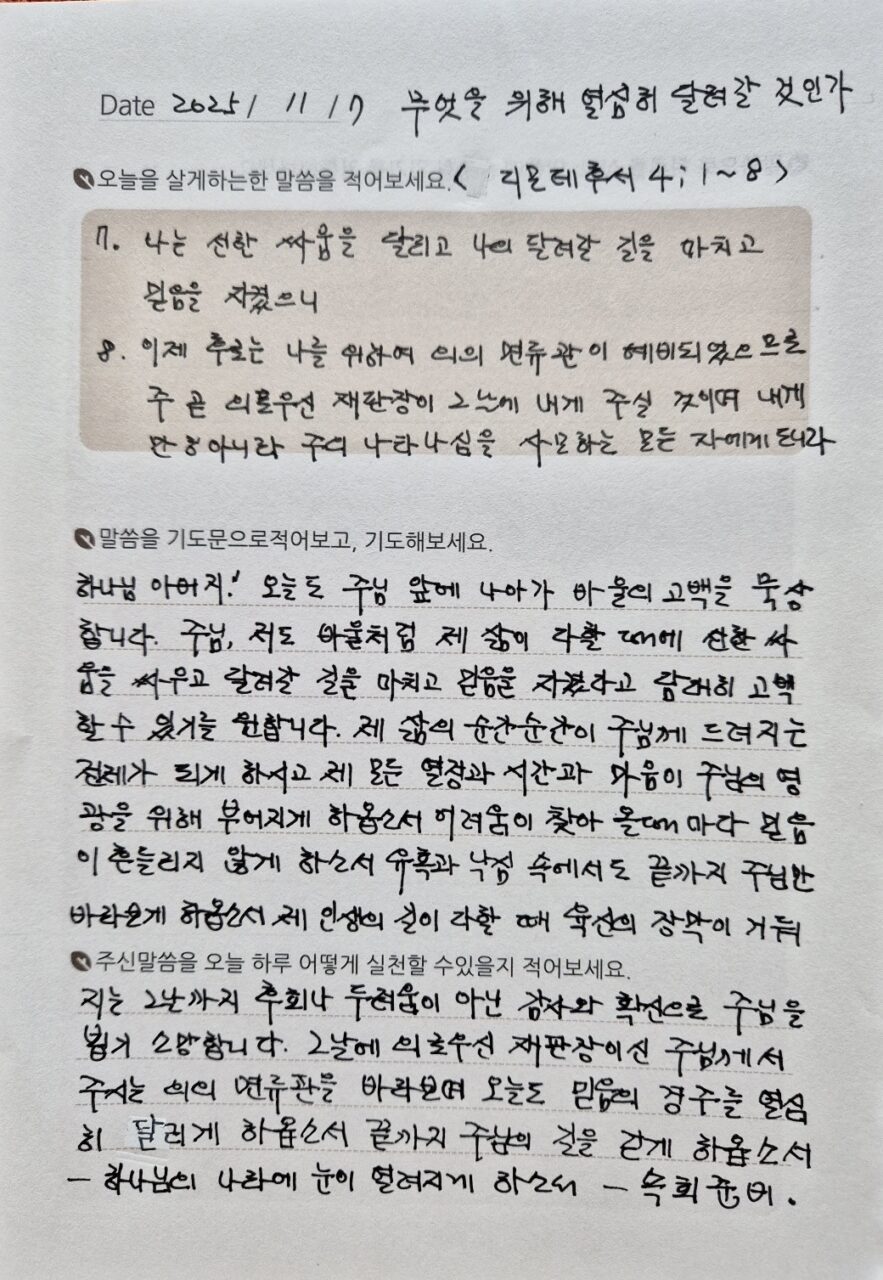 Date 2025/ 11 /7 무엇을 위해 열심히 달려갈 것인가
오늘을 살게하는한 말씀을 적어보세요. < 디모데후서 4;1~8 >
7. 나는 선한 싸움을 달리고 나의 달려갈 길을 마치고
믿음을 지켰으니
8. 이제 후로는 나를 위하여 의의 면류관이 예비되었으므로
주 곧 의로우신 재판장이 그날에 내게 주실 것이며 내게
만 아니라 주의 나타나심을 사모하는 모든 자에게도니라
말씀을 기도문으로적어보고, 기도해보세요.
하나님 아버지! 오늘도 주님 앞에 나아가 바울의 고백을 묵상
합니다. 주님, 저도 바울처럼 제 삶이 다할 때에 선한 싸
움을 싸우고 달려갈 길을 마치고 믿음을 지켰다고 담대히 고백
할 수 있기를 원합니다. 제 삶의 순간순간이 주님께 드려지는
전제가 되게 하시고 제 모든 열정과 시간과 마음이 주님의 영
광을 위해 부어지게 하옵소서 어려움이 찾아 올때마다 믿음
이 흔들리지 않게 하소서 유혹과 낙심 속에서도 끝까지 주님만
바라보게 하옵소서 제 인생의 길이 다할 때 육신의 장막이 거둬
주신말씀을 오늘 하루 어떻게 실천할 수있을지 적어보세요.
지는 그날까지 후회나 두려움이 아닌 감사와 확신으로 주님을
뵙기 소망합니다. 그날에 의로우신 재판장이신 주님께서
주시는 의의 면류관을 바라보며 오늘도 믿음의 경주를 열심
히 달리게 하옵소서 끝까지 주님의 길을 걷게 하옵소서
- 하나님의 나라에 눈이 열려지게 하소서 - 속회준비.